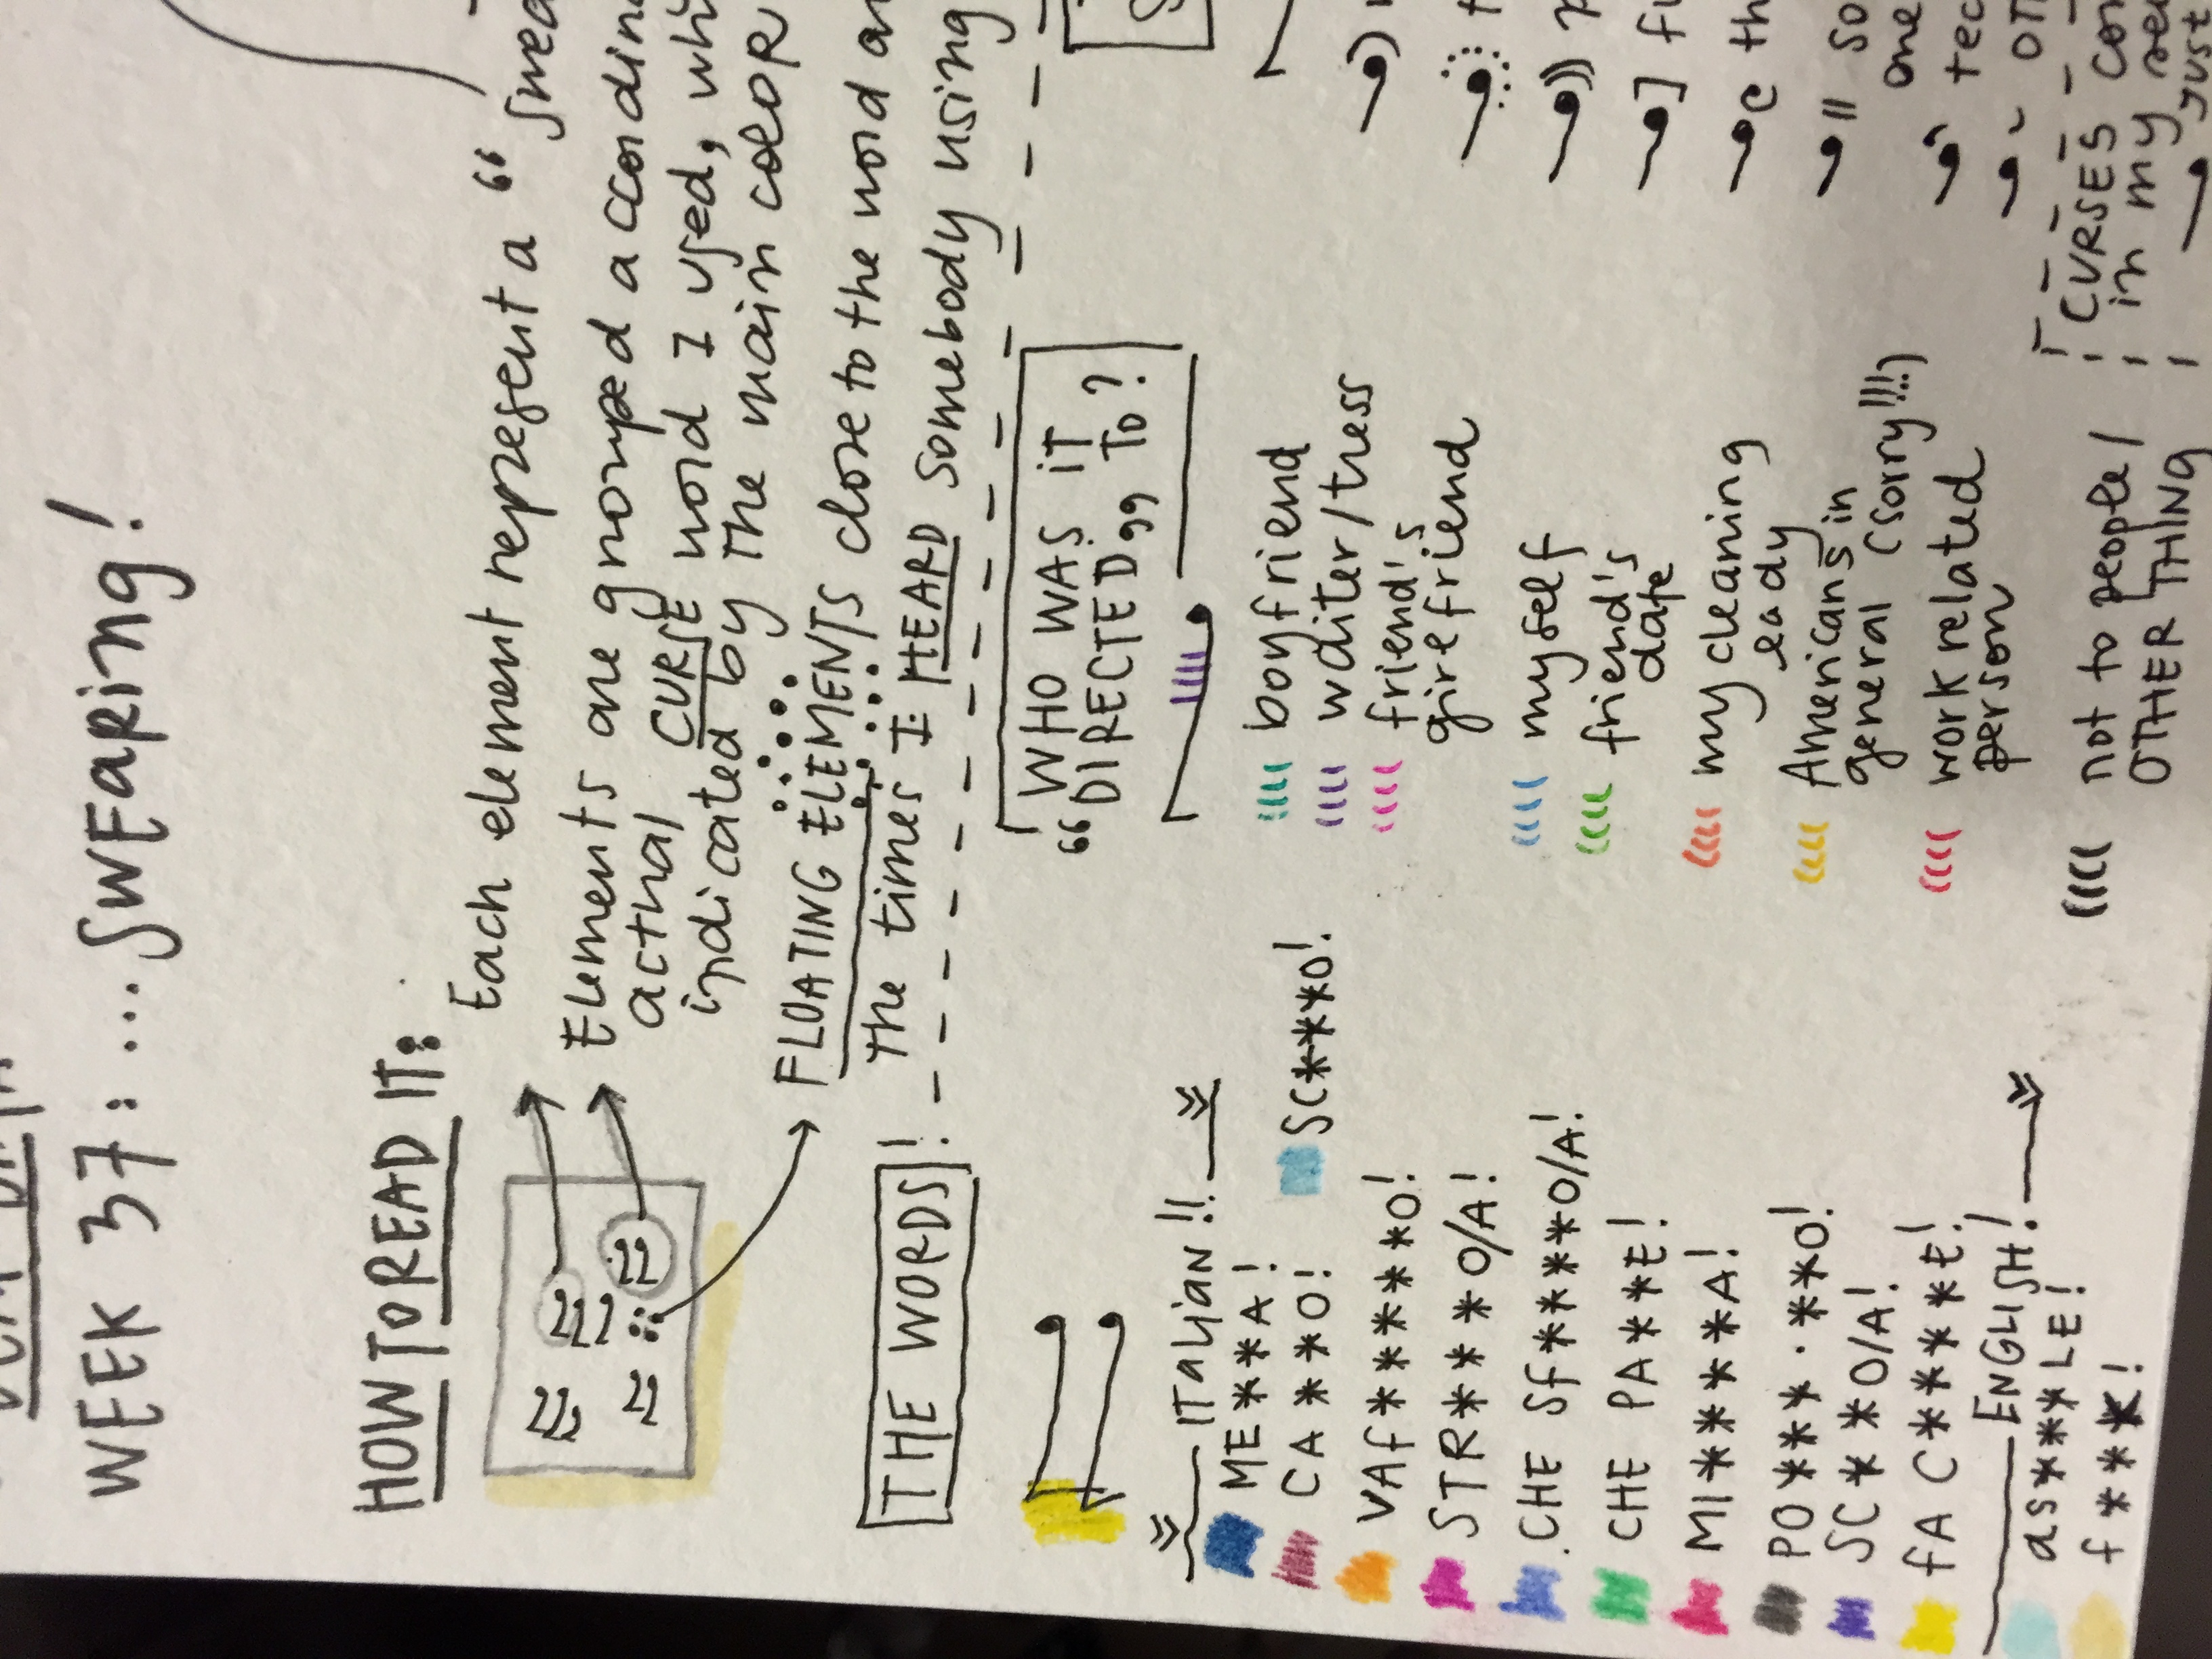 WEEK 37: ....SWEARING!
HOW TO READ IT:
Each element represent a "
Elements are grouped
actual CURSE word I used,
indicated by the main COLOR
FLOATING ELEMENTS close to the word
The times I HEARD somebody using
THE WORDS!
ITALIAN!!
ME**A!
CA**O!
SC***O!
VAF******O!
STR***O/A!
CHE SF****O/A!
CHE PA**E!
MI*****A!
PO***.**O!
SC**O/A!
FA C****E!
ENGLISH!
as***LE!
f***!
"WHO WAS IT
DIRECTED" TO?
boyfriend
waiter/tress
friend's
girlfriend
myself
friend's
date
my cleaning
lady
Americans in
general (sorry!!!!)
work related
person
not to people/
OTHER THING
one
CURSES
in my
just